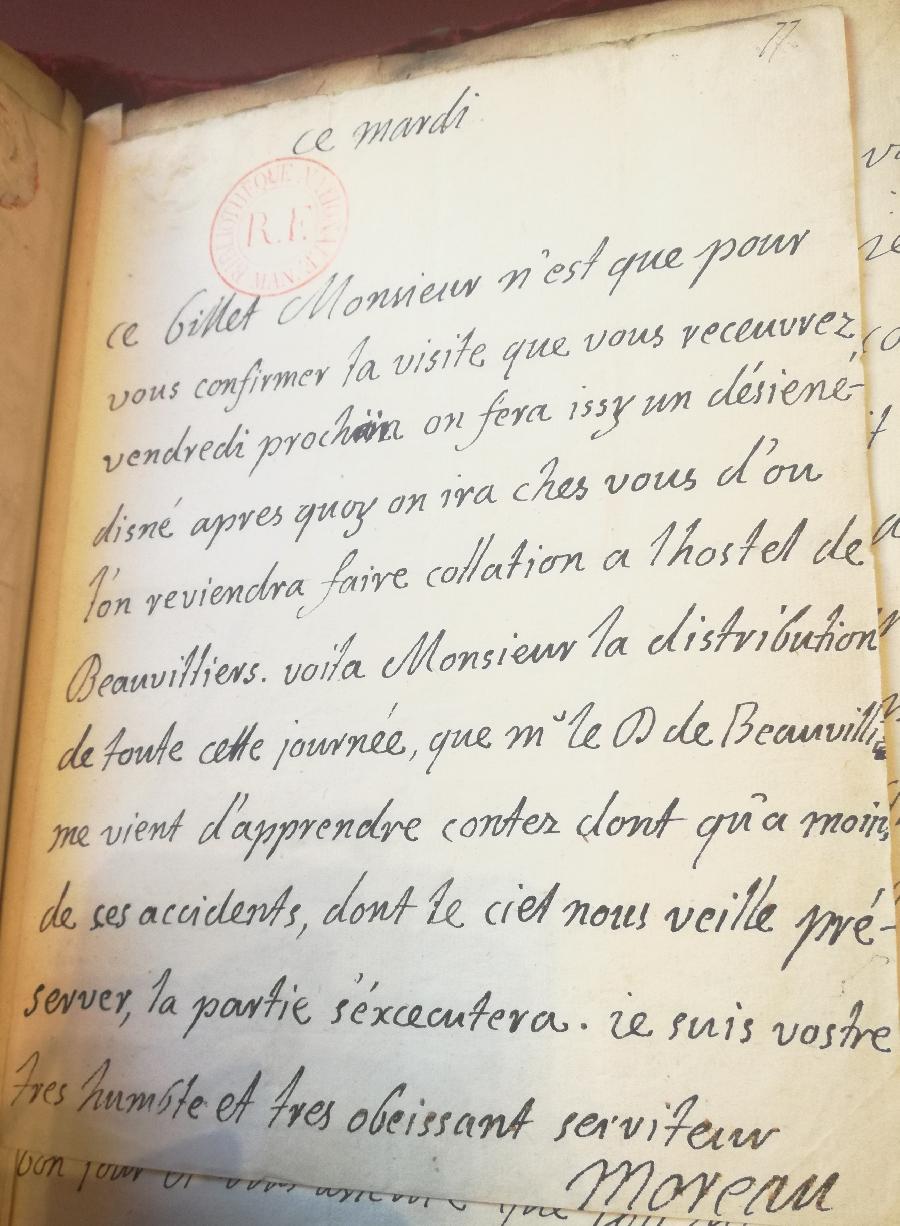 77
ce mardi
BIBLIOTHEQUE NATIONALE MAN
R.F.
ce billet Monsieur n'est que pour
vous confirmer la visite que vous receuvrez
vendredi prochain on fera issy un désiené-
disné apres quoy on ira ches vous d'ou
l'on reviendra faire collation a lhostel de
Beauvilliers. voila Monsieur la distribution
de toute cette journée, que mr le D de Beauvillie
me vient d'apprendre contez dont qu'a moins
de ses accidents, dont le ciel nous veille pré-
server, la partie s'éxcecutera. ie suis vostre
tres humble et tres obeissant serviteur
Moreau
bon jour